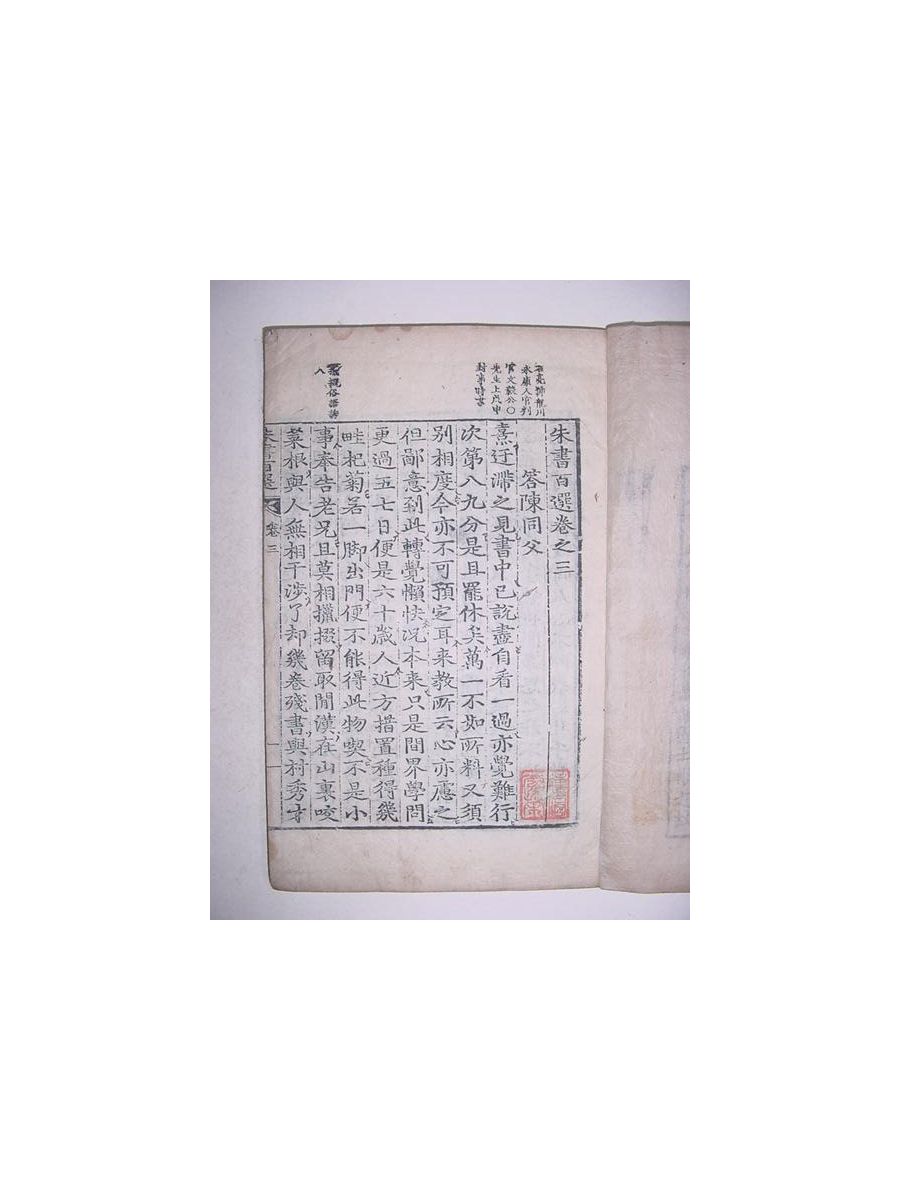 朱書百選卷之三
答陳同父
熹迂滯之見書中已說盡自看一過亦覺難行
次第八九分是且罷休矣萬一不如所料又須
別相度今亦不可預定耳來教所云心亦慮之
但鄙意到此轉覺懶怯况本來只是間界學問
更過五七日便是六十歲人近方措置種得幾
畦杞菊若一脚出門便不能得此物喫不是小
事奉告老兄且莫相攛掇留取閒漢在山裏咬
菜根與人無相干涉了却幾卷殘書與村秀才
亮號龍川
永康人官判
文毅公〇
先生上戊申
封事時書
俗語誘
人
朱書百選
卷三
一